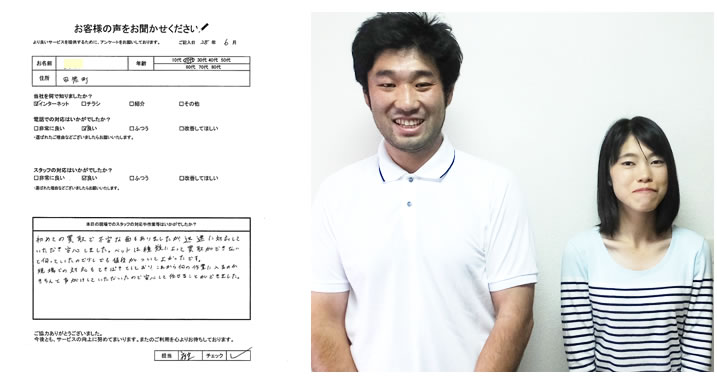 お客様の声をお聞かせください。
より良いサービスを提供するために、アンケートをお願いしております。 ご記入日 28 年 6 月
お名前 年齢 10代 20代 30代 40代 50代
60代 70代 80代
住所
当社を何で知りましたか？
☑インターネット □チラシ □紹介 □その他
電話での対応はいかがでしたか？
□非常に良い ☑良い □ふつう □改善してほしい
・選ばれたご理由などございましたらお願いいたします。
スタッフの対応はいかがでしたか？
□非常に良い ☑良い □ふつう □改善してほしい
・選ばれた理由などございましたらお願いいたします。
本日の現場でのスタッフの対応や作業等はいかがでしたか？
初めての買取で不安な面もありましたが迅速に対応して
いただき安心しました。ベットは種類によって買取ができない
と伺っていたのでひじでも値段がついてよかったです。
現場での対応もてきぱきとしており これから何の作業に入るのか
きちんと声かけしていただいたので安心して任せることができました。
ご協力ありがとうございました。
今後とも、サービスの向上に努めてまいります。またのご利用を心よりお待ちしております。
担当 チェック